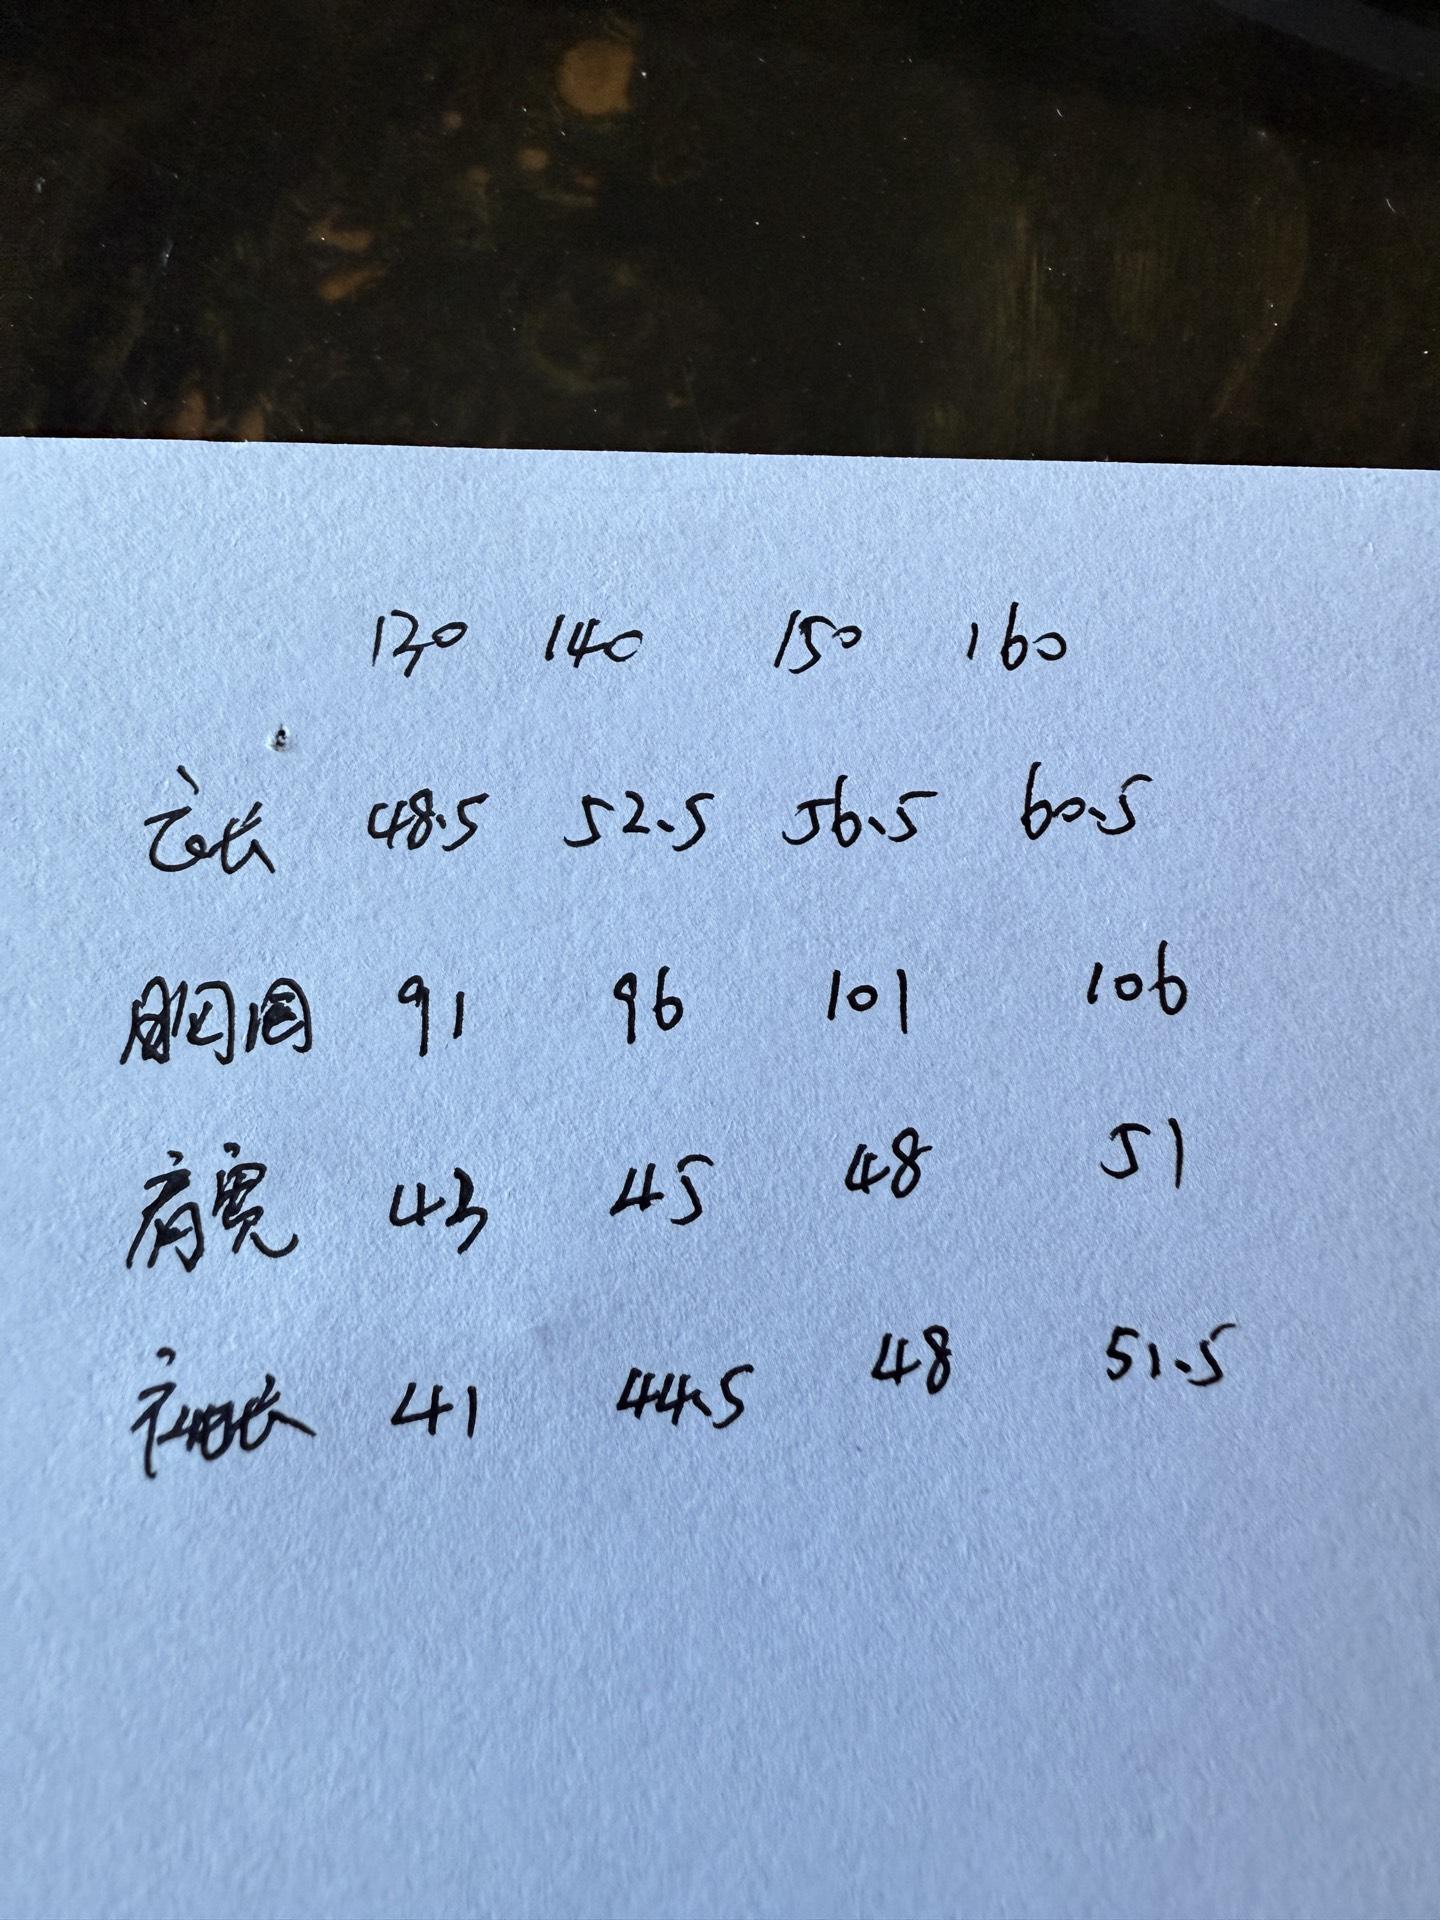 130 140 150 160
衣长 48.5 52.5 56.5 60.5
胸围 91 96 101 106
肩宽 43 45 48 51
袖长 41 44.5 48 51.5